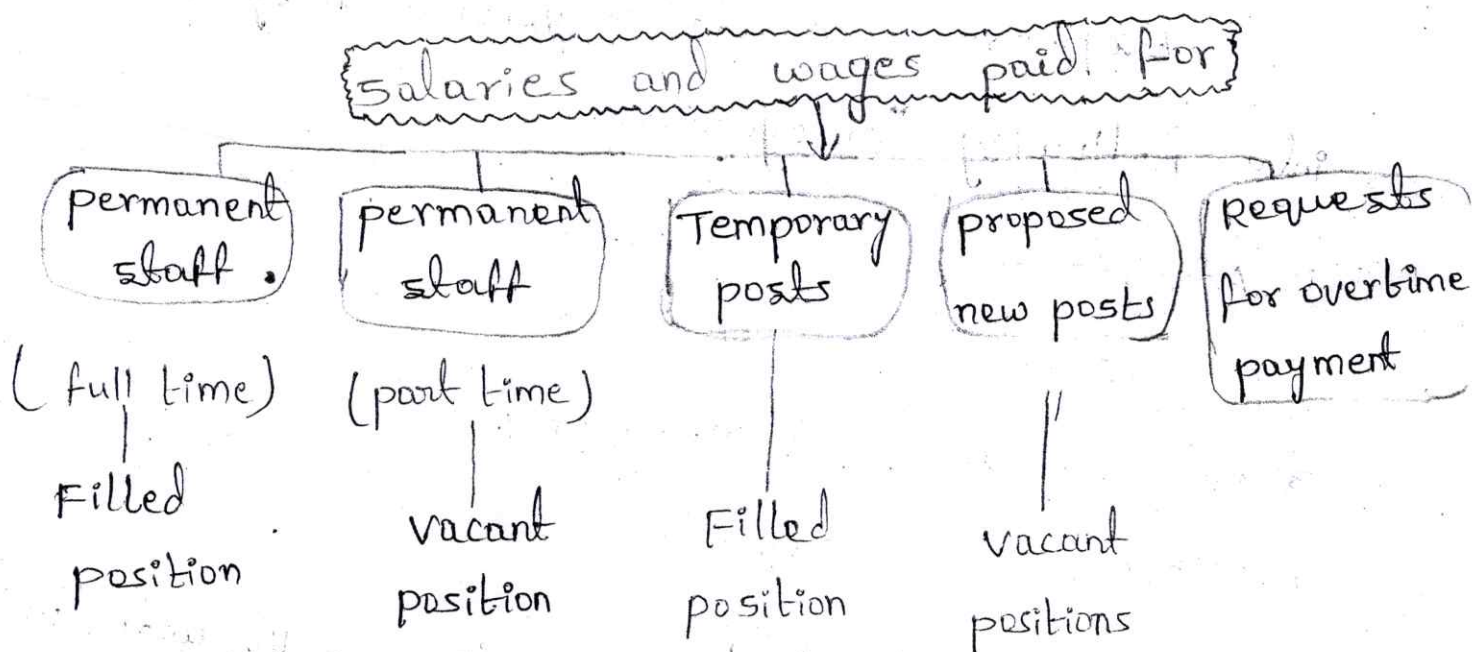 salaries and wages paid for
permanent
staff.
(full time)
Filled
position
permanent
staff
(part time)
vacant
position
Temporary
posts
Filled
position
proposed
new posts
vacant
positions
Requests
for overtime
payment